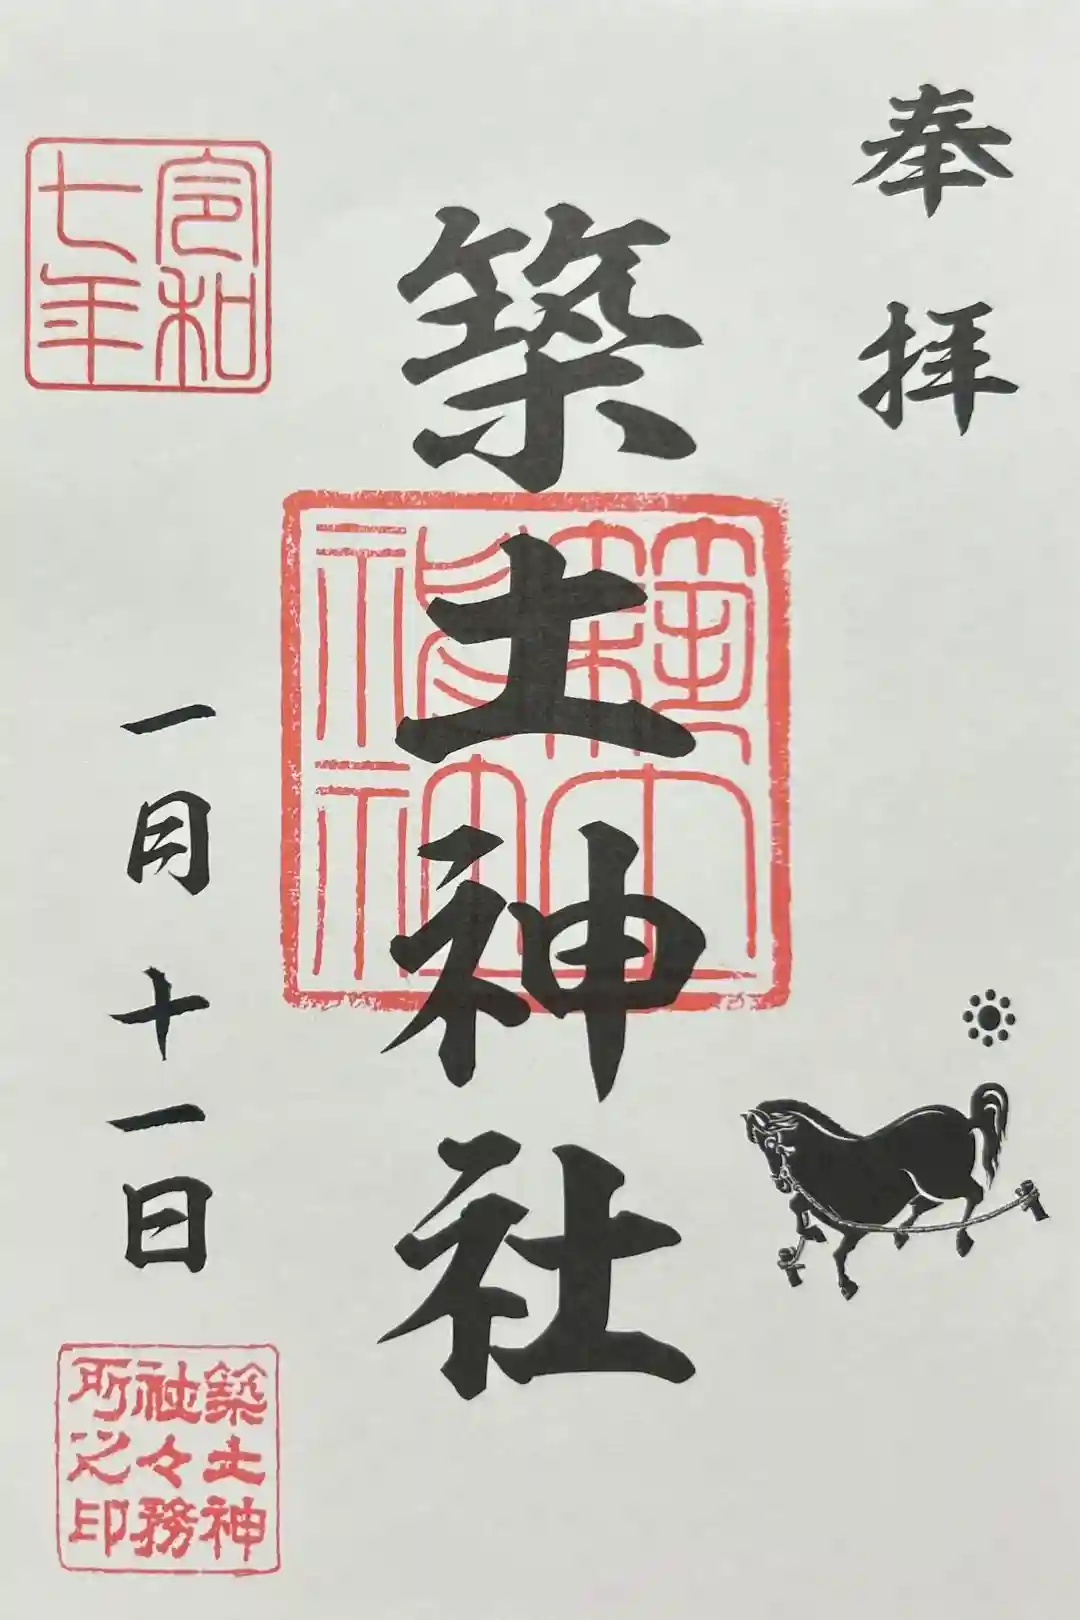 奉拝
築土神社
築土神社
令和七年
一月十一日
築土神社々務所之印